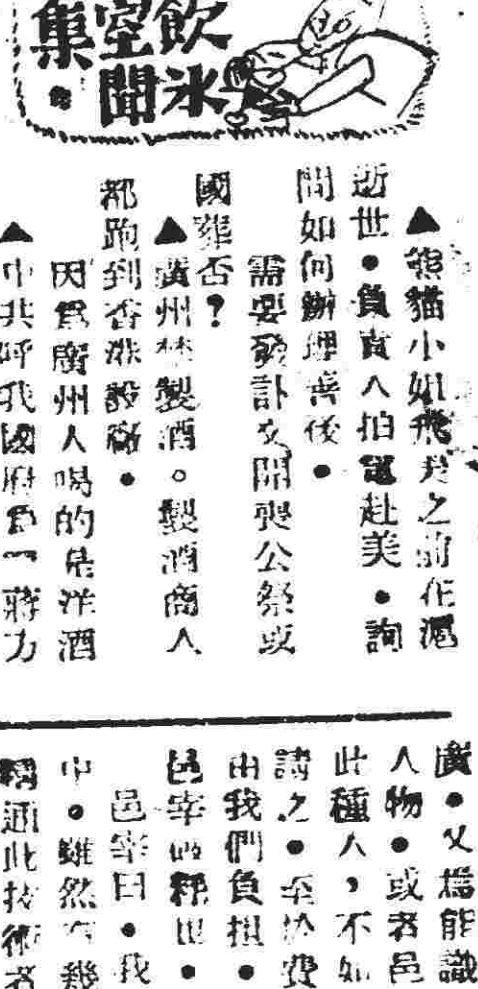 飲冰
室聞
集・
▲熊貓小姐飛美之前在滬
逝世・負責人拍電赴美・詢
問如何辦理善後・
需要發訃文開喪公祭或
國葬否？
▲廣州禁製酒。製酒商人
都跑到香港設廠・
因為廣州人喝的是洋酒
▲中共呼我國府為「蔣方
廣・又為能識
人物・或者邑
此種人，不如
請之・至於費
由我們負担・
邑宰
邑宰曰・我
中・雖然有幾
精通此技術者